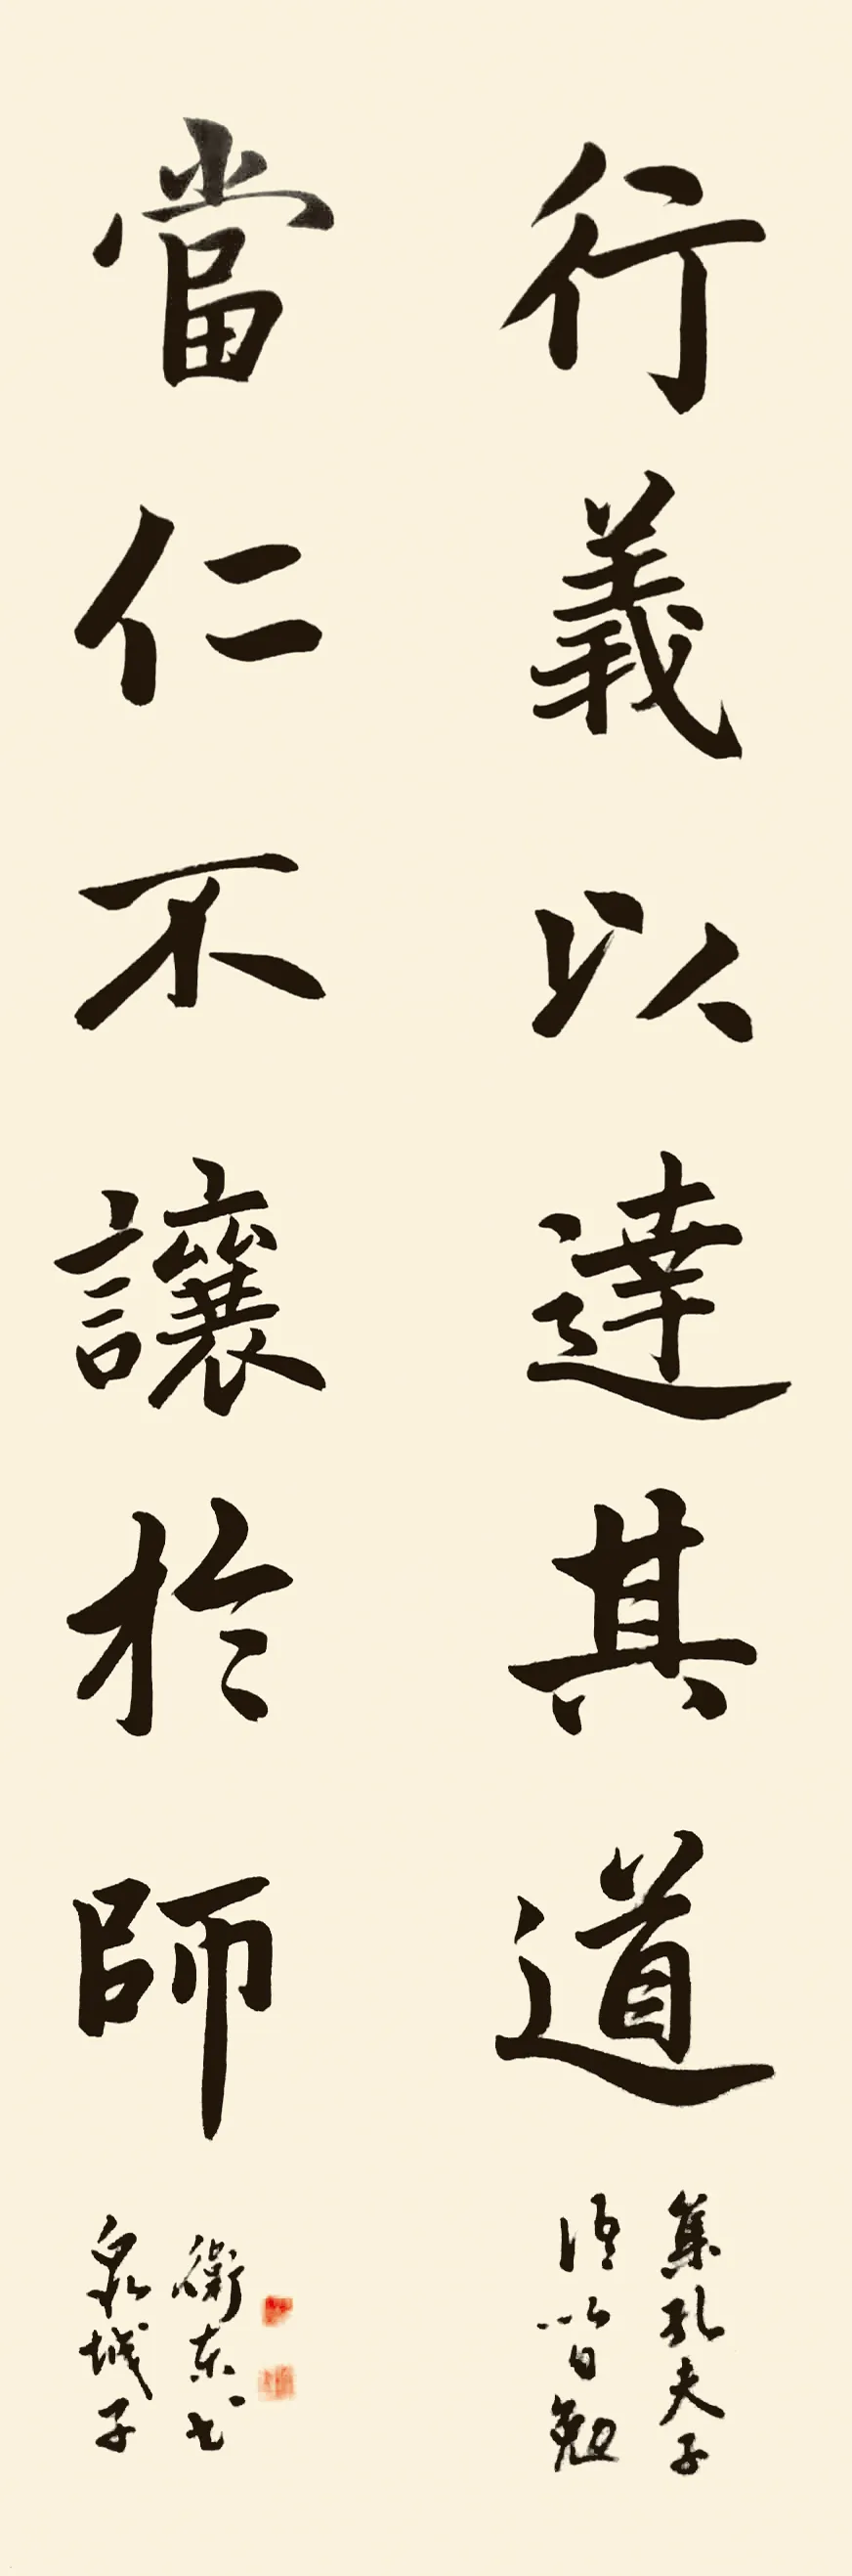 行義以達其道
集孔夫子
語以自勉
當仁不讓於師
衛東书
泉城子